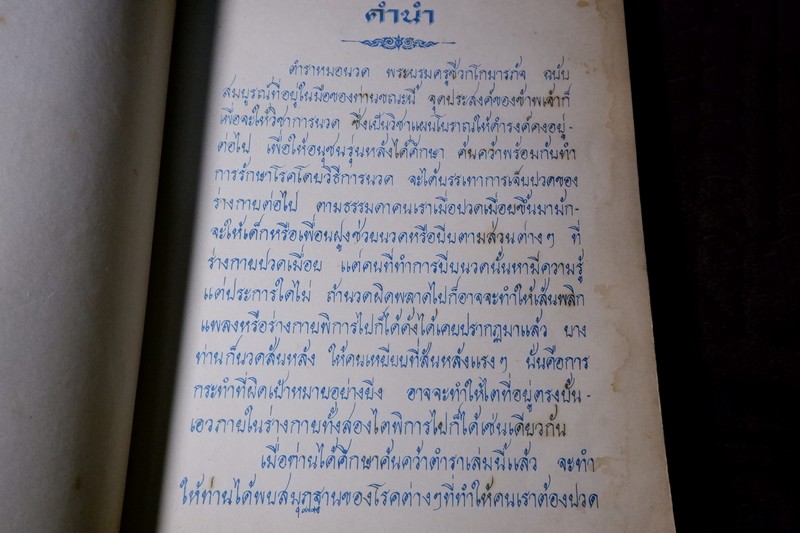 คำนำ
ตำราหมอนวด พระบรมครุชีวกโกมารภัจ ฉบับ
สมบูรณ์ที่อยู่ในมือของท่านขณะนี้ จุดประสงค์ของข้าพเจ้าก็
เพื่อจะให้วิชาการนวด ซึ่งเป็นวิชาแผนโบราณให้ดำรงค์คงอยู่-
ต่อไป เพื่อให้อนุชนรุ่นหลังได้ศึกษา ค้นคว้าพร้อมกับทำ
การรักษาโรคโดยวิธีการนวด จะได้บรรเทาการเจ็บปวดของ
ร่างกายต่อไป ตามธรรมดาคนเราเมื่อปวดเมื่อยขึ้นมามัก-
จะให้เด็กหรือเพื่อนฝูงช่วยนวดหรือบีบตามส่วนต่างๆ ที่
ร่างกายปวดเมื่อย แต่คนที่ทำการบีบนวดนั้นหามีความรู้
แต่ประการใดไม่ ถ้านวดผิดพลาดไปก็อาจจะทำให้เส้นพลิก
แพลงหรือร่างกายพิการไปก็ได้ดังได้เคยปรากฏมาแล้ว บาง
ท่านก็นวดสันหลัง ให้คนเหยียบที่สันหลังแรงๆ นั่นคือการ
กระทำที่ผิดเป้าหมายอย่างยิ่ง อาจจะทำให้ไตที่อยู่ตรงบั้น-
เอวภายในร่างกายทั้งสองไตพิการไปก็ได้เช่นเดียวกัน
เมื่อท่านได้ศึกษาค้นคว้าตำราเล่มนี้แล้ว จะทำ
ให้ท่านได้พบสมุฏฐานของโรคต่างๆที่ทำให้คนเราต้องปวด